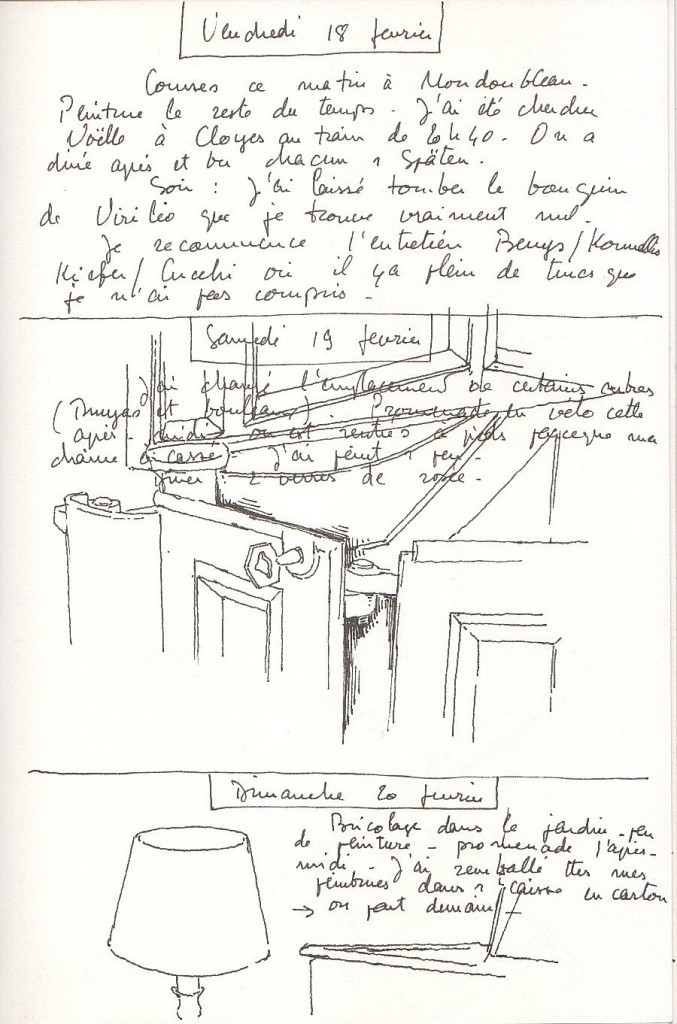 Vendredi 18 fevrier
Courses ce matin à Mondoubleau.
Peinture le reste du temps. J'ai été chercher
Noëlle à Cloyes au train de 20h40. On a
diné après et bu chacun 1 Späten.
Soir : J'ai laissé tomber le bouquin
de Virilio que je trouve vraiment nul.
Je recommence l'entretien Beuys/Kounellis
Kiefer/Cucchi où il y a plein de trucs que
je n'ai pas compris.
Samedi 19 fevrier
J'ai changé l'emplacement de certains arbres
( et bouleaux). Promenade en vélo cette
après-midi on est rentrés à pieds parceque ma
chaine a cassé. J'ai peint 1 peu.
Diner : 2 verres de rosée.
Dimanche 20 fevrier
Bricolage dans le jardin - peu
de peinture - promenade l'après-
midi. J'ai remballé ttes mes
peintures dans 1 caisse en carton
→ on part demain -